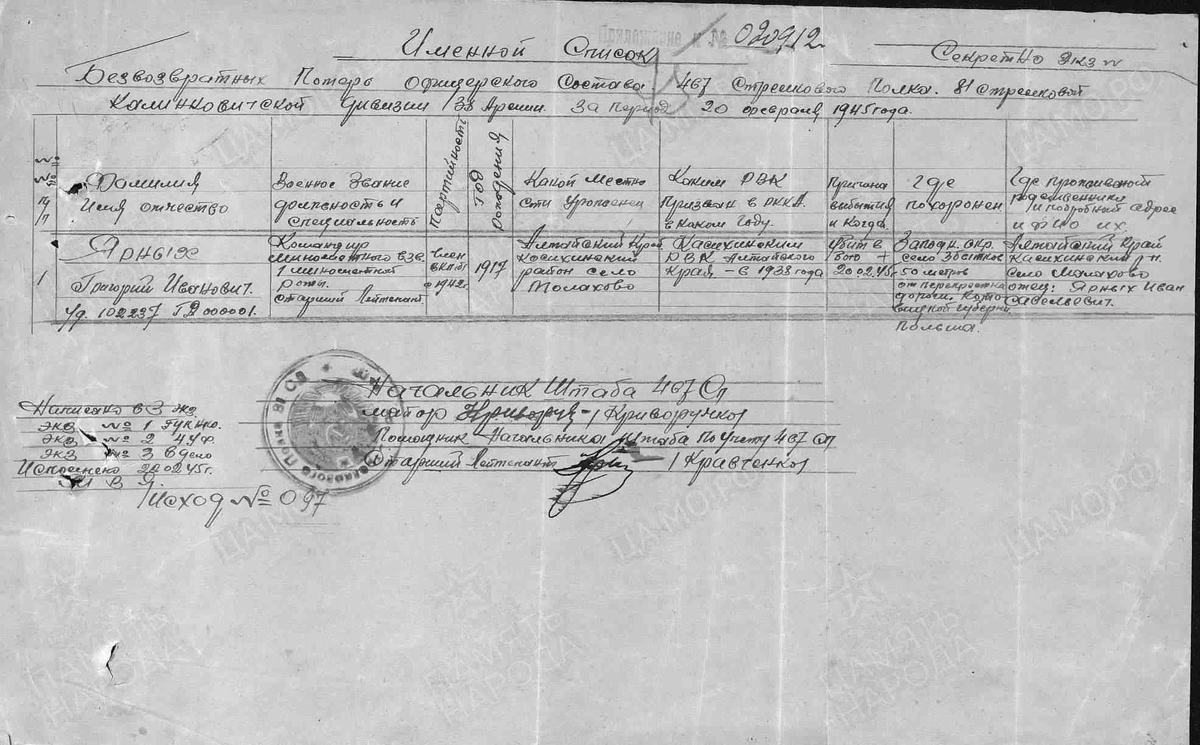 020912
Именной Список
Секретно экз №
Безвозвратных Потерь офицерского Состава 467 Стрелкового Полка. 81 Стрелковой
Калинковичской дивизии 33 Армии. За период 20 февраля 1945 года.
№ №
п/п
Фамилия
Имя отчество
Военное Звание
должность и
специальность
Партийность
Год
рождения
Какой местно
сти Уроженец
Каким РВК
Призван в РККА
в каком году.
Причина
выбытия
и Когда
Где
похоронен
Где проживают
родственники
и подробный адрес
и ФИО их.
1
Ярных
Григорий Иванович.
уд. 102237
Командир
минометного вз.
1 минометной
роты.
старший Лейтенант
член
ВКП(б)
с 1942г.
1917
Алтайский Край
Косихинский
район село
Молахово
Касихинским
РВК Алтайского
Края – в 1938 года
Убит в
бою
20.02.45г.
Западн. окр.
село
50 метров
от перекрестка
дороги.
Польша.
Алтайский Край
Касихинский р-н.
село Малахово
отец: Ярных Иван
Савельевич.
Начальник Штаба 467 Сп
майор /Криворучко/
Помощник Начальника Штаба По Учету 467 Сп
Старший Лейтенант /Кравченко/
Написано в 3 экз
экз № 1 ГУК НКО.
экз № 2 4 Уф.
экз № 3 в дело
Исполнено 22.02.45г.
Исход № 097
ЦАМО.РФ
ПАМЯТЬ
НАРОДА